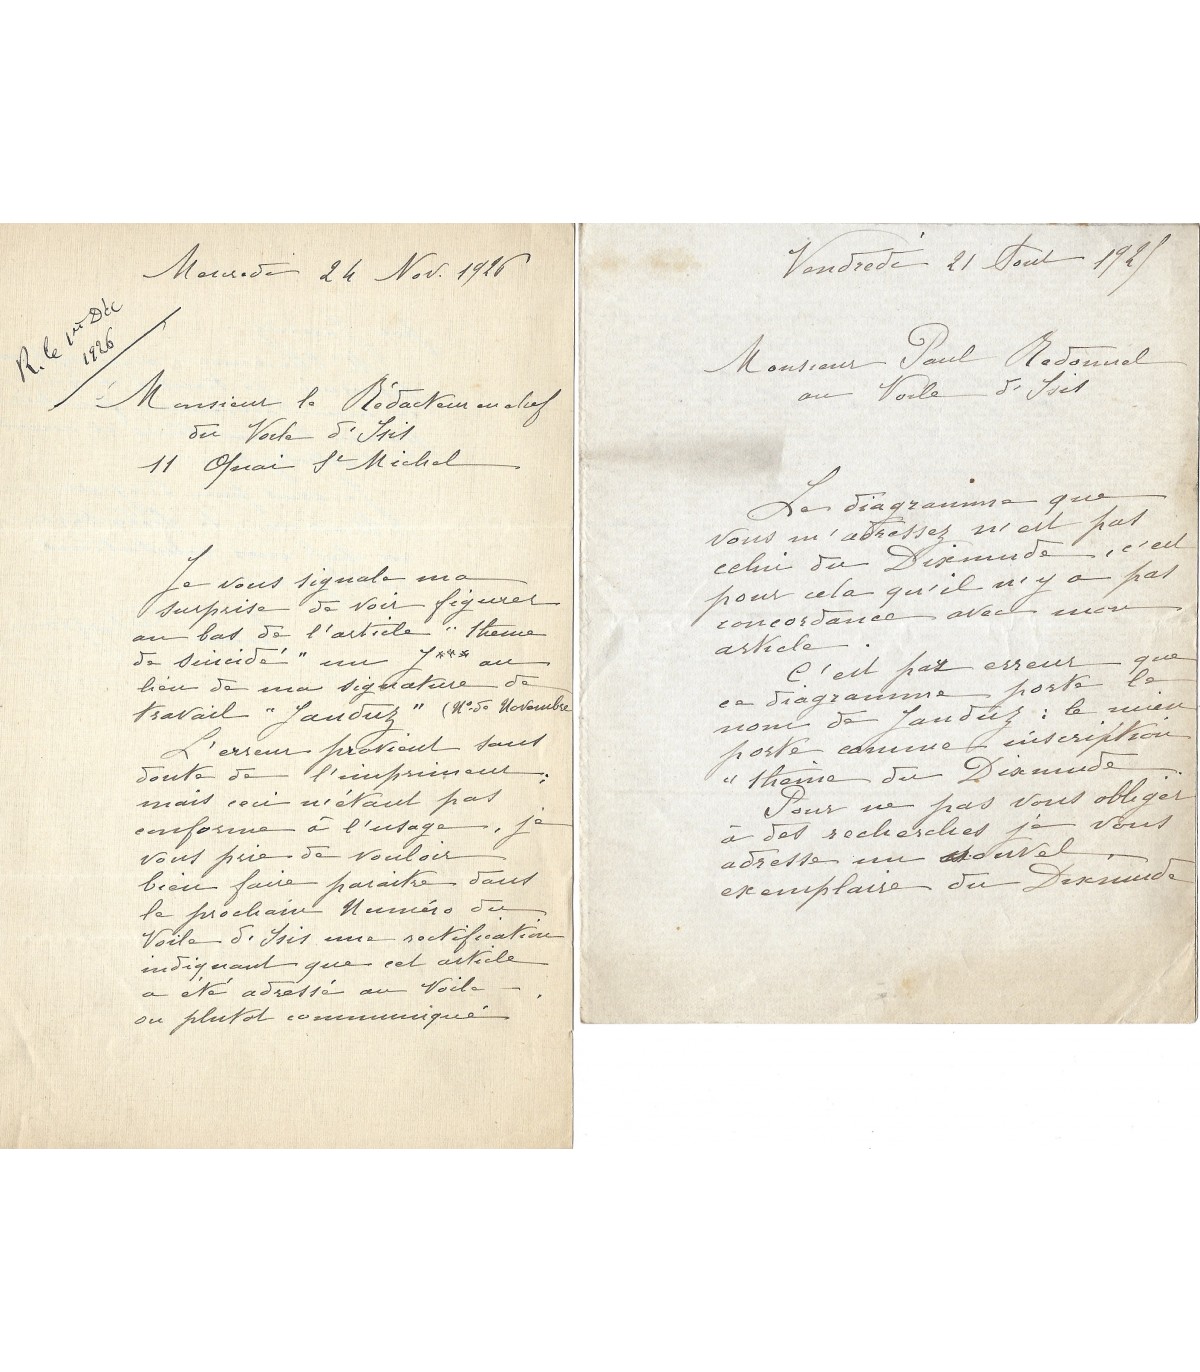 Mercredi 24 Nov. 1926
R. le 1er Déc
1926
Monsieur le Rédacteur en chef
du Voile d'Isis
11 Quai St Michel
Je vous signale ma
surprise de voir figurer
au bas de l'article "thème
de suicidé" un J*** au
lieu de ma signature de
travail "Janduz" (No de Novembre
L'erreur provient sans
doute de l'imprimeur;
mais ceci n'étant pas
conforme à l'usage, je
vous prie de vouloir
bien faire paraitre dans
le prochain Numéro du
Voile d'Isis une rectification
indiquant que cet article
a été adressé au Voile –,
ou plutot communiqué
Vendredi 21 Aout 1925
Monsieur Paul Redonnel
au Voile d'Isis
Le diagramme que
vous m'adressez n'est pas
celui du Dixmude, c'est
pour cela qu'il n'y a pas
concordance avec mon
article.
C'est par erreur que
ce diagramme porte le
nom de Janduz: le mien
porte comme inscription
"thème du Dixmude.
Pour ne pas vous obliger
à des recherches je vous
adresse un nouvel
exemplaire du Dixmude